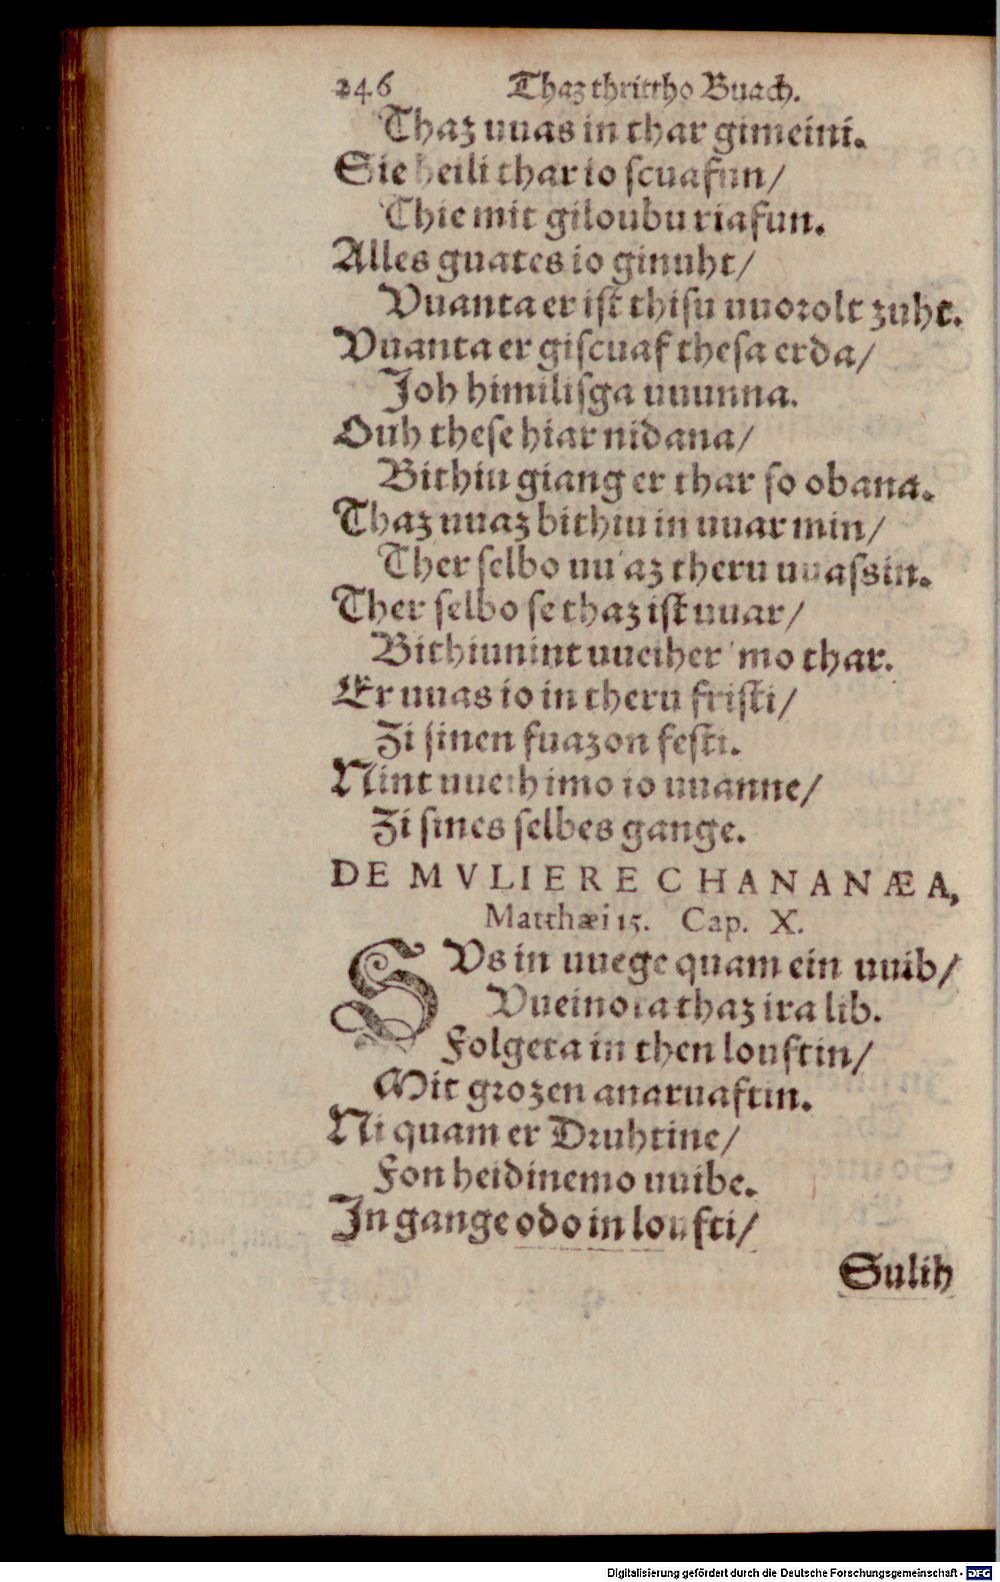 246 Thaz thrittho Buach.
Thaz uuas in thar gimeini.
Sie heili thar io scuafun/
Thie mit giloubu riafun.
Alles guates io ginuht/
Vuanta er ist thisu uuorolt zuht.
Vuanta er giscuaf thesa erda/
Joh himilisga uuunna.
Ouh these hiar nidana/
Bithiu giang er thar so obana.
Thaz uuaz bithiu in uuar min/
Ther selbo uu az theru uuassin.
Ther selbo se thaz ist uuar/
Bithiunint uueiher mo thar.
Er uuas io in theru fristi/
Zi sinen fuazon festi.
Nint uueih imo io uuanne/
Zi sines selbes gange.
DE MVLIERE CHANANÆA,
Matthæi 15. Cap. X.
SVs in uuege quam ein uuib/
Vueinota thaz ira lib.
Folgeta in then louftin/
Mit grozen anaruaftin.
Ni quam er Druhtine/
Fon heidinemo uuibe.
In gange odo in loufti/
Sulih
Digitalisierung gefördert durch die Deutsche Forschungsgemeinschaft - DFG